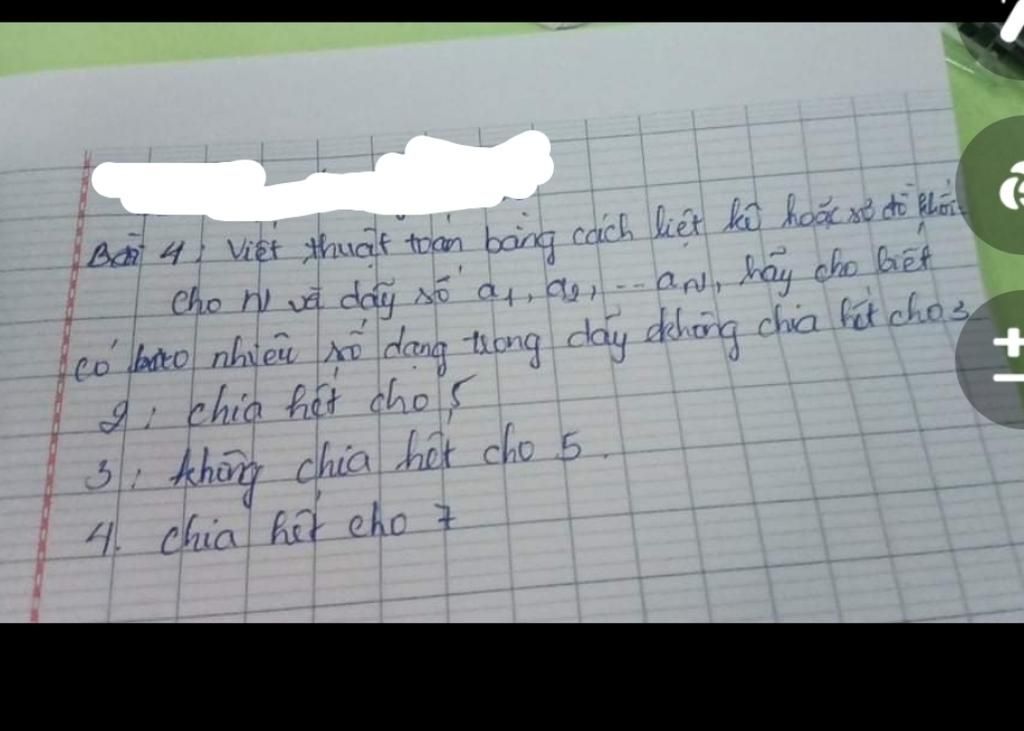 Bài 4: Viết thuật toán bằng cách liệt kê hoặc sơ đồ khối
cho N và dãy số a1, a2, ... aN, hãy cho biết
có bao nhiêu số dạng trong dãy không chia hết cho 3
2, chia hết cho 5
3, không chia hết cho 5.
4. chia hết cho 7